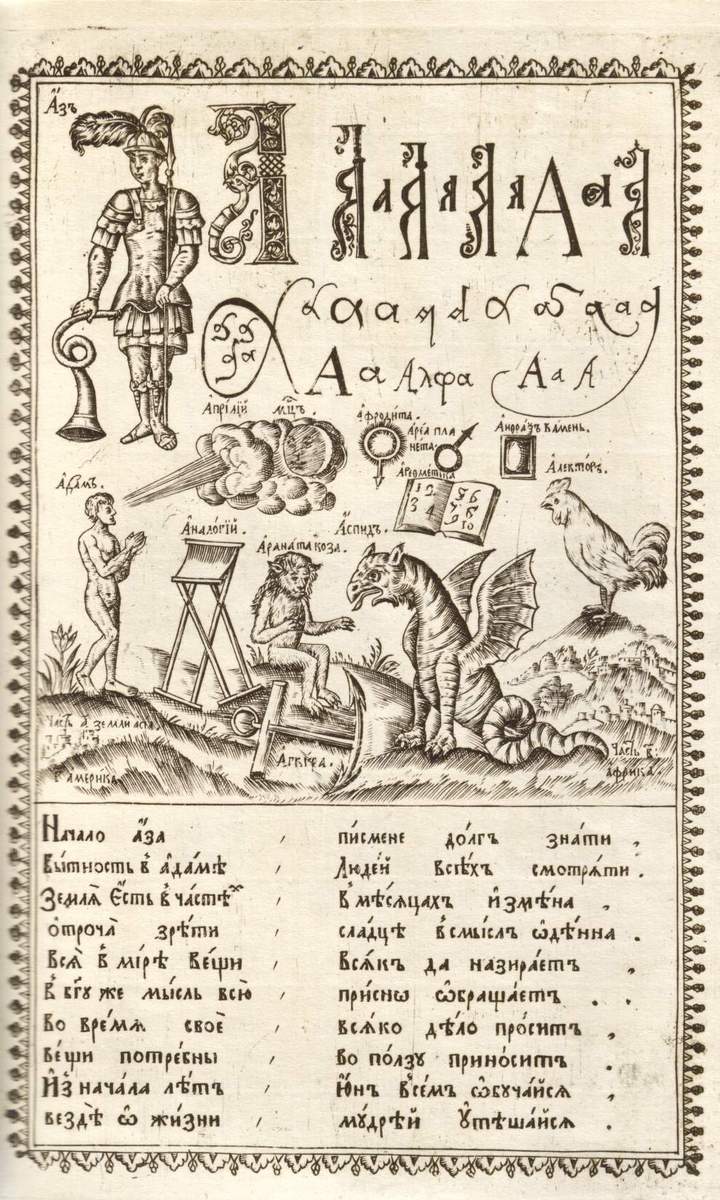 А҆́зъ
А
А а А а А а А а А
а а а а а а а а а
А а Алфа А а А
А҆прі́лїй мц҃ъ. А҆фроди́та. А҆ре́а плане́та. А҆нѳра́ѯъ ка́мень.
А҆да́мъ. А҆риѳме́тїка А҆ле́кторъ.
1 2 3 4 5 6 7 8 9 10
А҆нало́гїй. А҆спи́дъ.
А҆рана́та коза.
Часть а҃ земли а҆сїа
А҆гкѵ́ра. Часть в҃.
г҃ америка. а҆фри́ка.
Начало а҆́за , писмене до́лгъ зна́ти ,
Бы́тность в̾ а҆да́мѣ , Люде́й всѣ́хъ смотрѧ́ти .
Землѧ̀ є҆́сть в̾ ча́стѣхъ , В̾ мѣ́сѧцахъ и҆змѣ́на ,
ѻ҆троча̀ зрѣ́ти , сла́дцѣ в̾смы́слъ ѡ҆дѣ́нна .
Всѧ̀ в̾ мі́рѣ ве́щи , всѧ́къ да назира́етъ ,
в̾ бг҃у же мы́сль всю̀ , при́снѡ ѡ҆браща́етъ .
Во вре́мѧ своѐ , всѧ́ко дѣ́ло про́ситъ ,
ве́щи потре́бны , во по́лзу прино́ситъ .
И҆з̾ нача́ла лѣ́тъ , Ю҆́нъ в̾се́мъ ѡ҆буча́йсѧ ,
вездѣ̀ ѡ҆ жи́зни , мꙋ́дрѣй ᲂу҆тѣша́йсѧ .